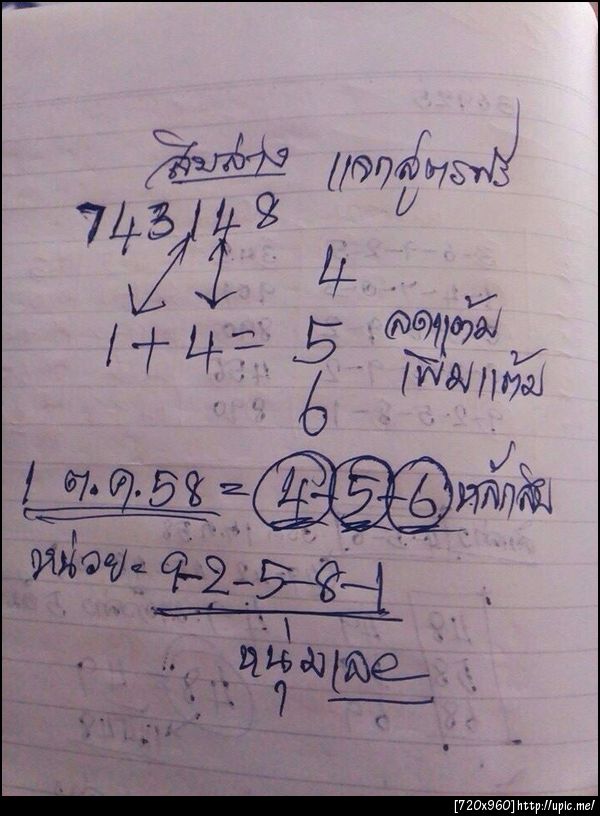 สิบล่าง แจกสูตรฟรี
743148
4
1+4= 5 ลดแต้ม
เพิ่มแต้ม
6
1 ต.ค.58 = 4-5-6 หลักสิบ
หน่วย= 9-2-5-8-1
หนุ่มเลย
[720x960]http://upic.me/